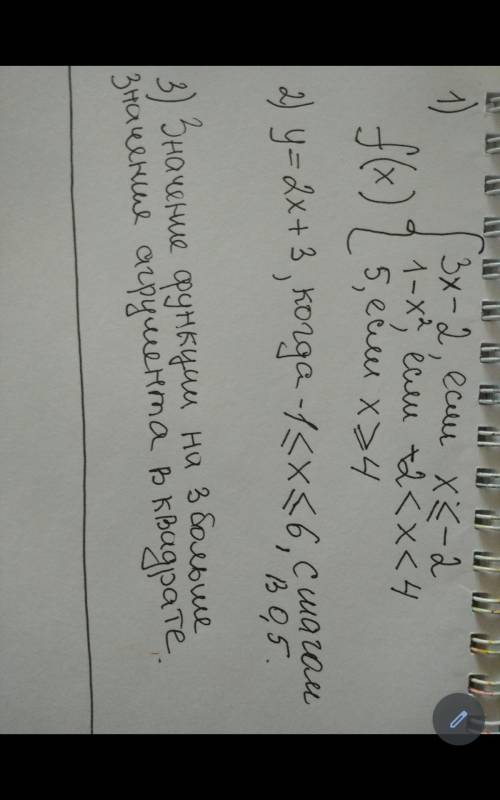 1)
f(x) { 3x-2, если x≤-2
1-x², если -2<x<4
5, если x≥4
2) y=2x+3, когда -1≤x≤6, с шагом
в 0,5.
3) Значение функции на 3 больше
значения агрумента в квадрате.